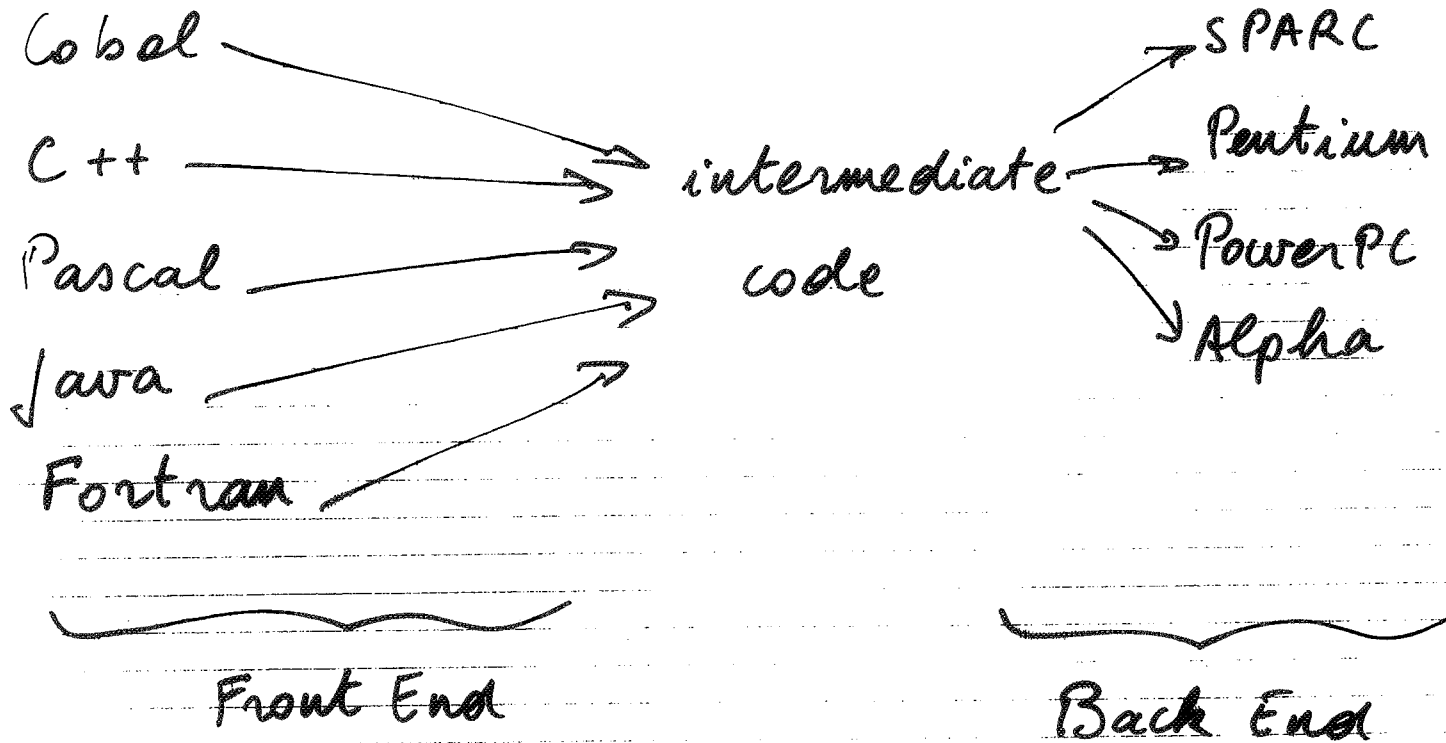 Cobol
C++
Pascal
Java
Fortran
intermediate
code
SPARC
Pentium
PowerPC
Alpha
Front End
Back End